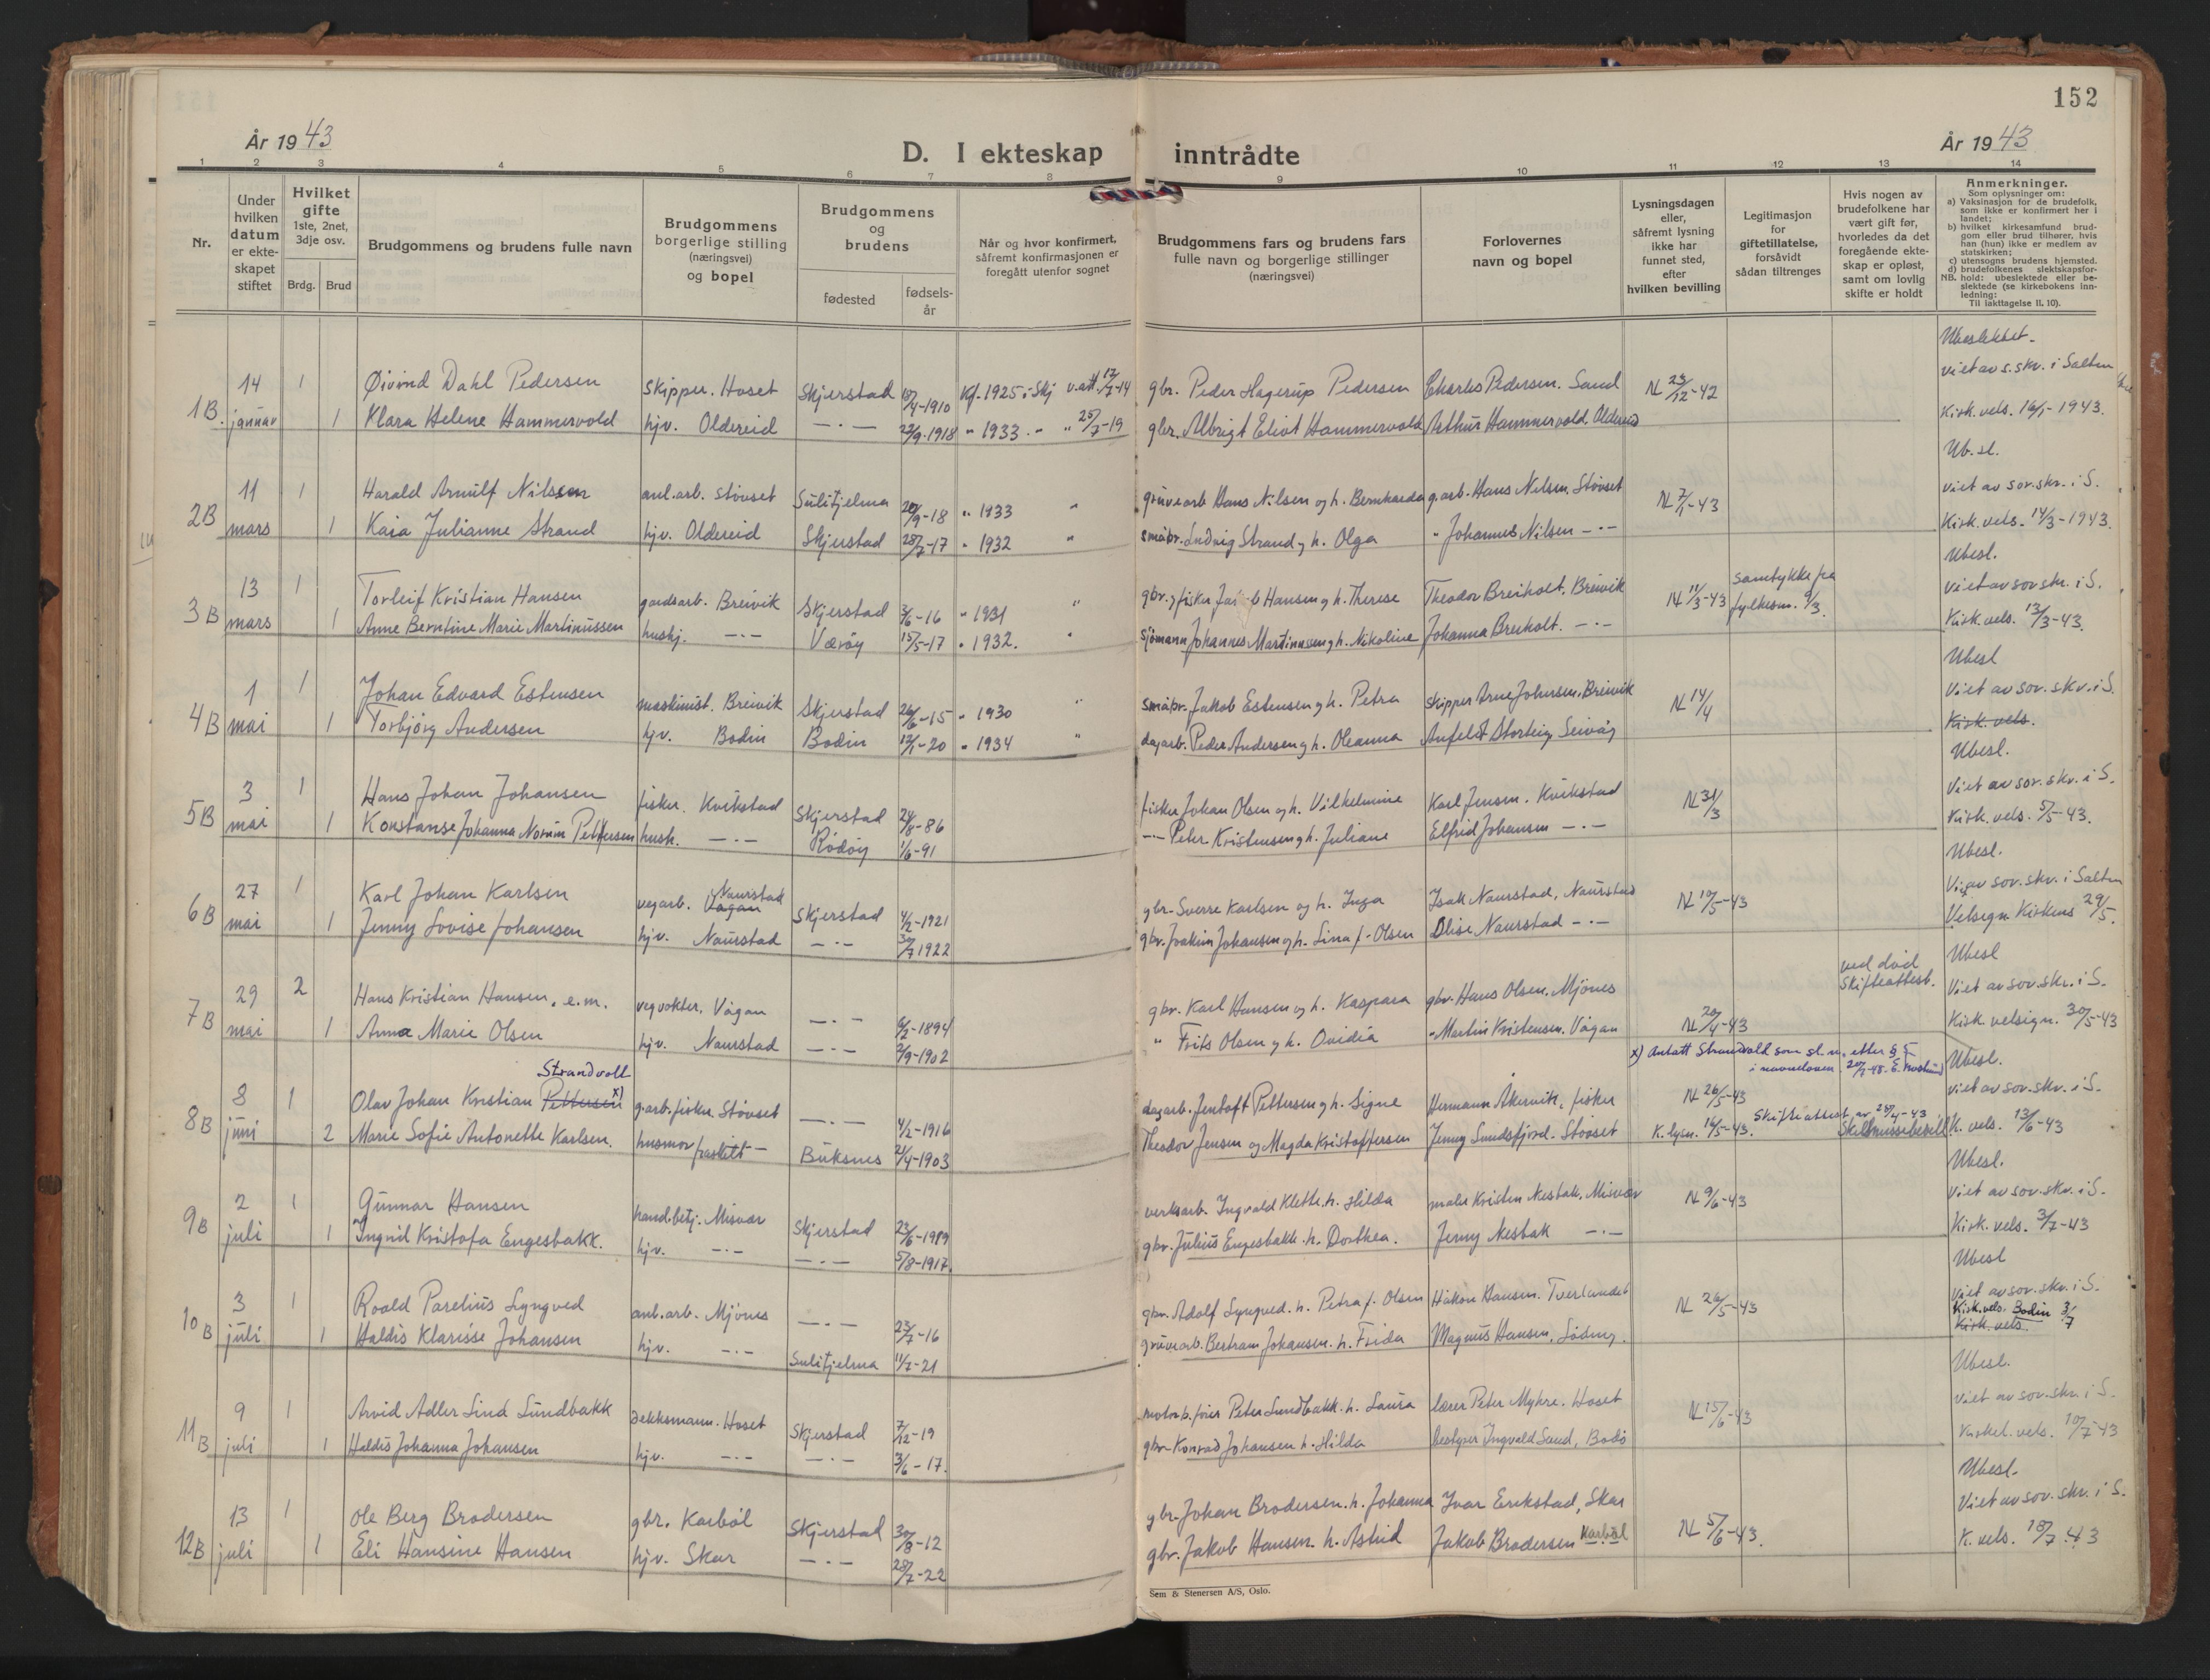 152
År 1943
D. I ekteskap inntrådte
År 1943
1 2 3 4 5 6 7 8 9 10 11 12 13 14
Nr.
Under hvilken datum er ekteskapet stiftet
Hvilket gifte 1ste, 2net, 3dje osv.
Brdg. Brud
Brudgommens og brudens fulle navn
Brudgommens borgerlige stilling (næringsvei) og bopel
Brudgommens og brudens
fødested
fødsels-år
Når og hvor konfirmert, såfremt konfirmasjonen er foregått utenfor sognet
Brudgommens fars og brudens fars fulle navn og borgerlige stillinger (næringsvei)
Forlovernes navn og bopel
Lysningsdagen eller, såfremt lysning ikke har funnet sted, efter hvilken bevilling
Legitimasjon for giftetillatelse, forsåvidt sådan tiltrenges
Hvis nogen av brudefolkene har vært gift før, hvorledes da det foregående ekteskap er opløst, samt om lovlig skifte er holdt
Anmerkninger.
Som oplysninger om:
a) Vaksinasjon for de brudefolk, som ikke er konfirmert her i landet;
b) hvilket kirkesamfund brudgom eller brud tilhører, hvis han (hun) ikke er medlem av statskirken;
c) utensogns brudens hjemsted.
d) brudefolkenes slektskapsforhold: ubeslektede eller beslektede (se kirkebokens innledning:
NB. Til iakttagelse II. 10).
Ubeslektet.
14 1 Øivind Dahl Pedersen skipper. Hoset Skjerstad 18/4-1910 Kf. 1925 i Skj v.att. 17/7-14 gbr. Peder Hagerup Pedersen Charles Pedersen. Sand N 23/12-42 viet av s.skr. i Salten
1B. januar 1 Klara Helene Hammervold hjv. Oldereid —·— 22/9-1918 " 1933 - " 25/7-19 gbr. Albrigt Eliot Hammervold Arthur Hammervold. Oldereid Kirk. vels. 16/1-1943.
Ub.sl.
11 1 Harald Arnulf Nilssen anl.arb. Støvset Sulitjelma 20/9-18 " 1933 " gruvearb Hans Nilsen og h. Bernharda g.arb. Hans Nilsen. Støvset N 7/1-43 viet av sor.skr. i S.
2B mars 1 Kaia Julianne Strand hjv. Oldereid Skjerstad 28/7-17 " 1932 " småbr. Ludvig Strand og h. Olga " Johannes Nilsen —·— Kirk. vels. 14/3-1943.
Ubesl.
13 1 Torleif Kristian Hansen gardsarb. Breivik Skjerstad 3/6-16 " 1931 " gbr. og fisker Jakob Hansen og h. Therese Theodor Breiholt. Breivik N 11/3-43 samtykke fra fylkesm. 9/3. viet av sor.skr. i S.
3B mars 1 Anne Berntine Marie Martinussen hushj. —·— Værøy 15/5-17 " 1932. " sjømann Johannes Martinussen og h. Nikoline Johanna Breiholt. —·— Kirk. vels. 13/3-43.
Ubesl
1 1 Johan Edvard Estensen maskinist. Breivik Skjerstad 26/6-15 " 1930 " småbr. Jakob Estensen og h. Petra skipper Arne Johnsen, Breivik N 14/4 Viet av sor. skr. i S.
4B mai 1 Torbjørg Andersen hjv. Bodin Bodin 12/1-20 " 1934 " dagarb. Peder Andersen og h. Oleanna Anfelt Storteig Seivåg Kirk. vels.
Ubesl.
3 1 Hans Johan Johansen fisker. Kvikstad Skjerstad 24/8-86 fisker Johan Olsen og h. Vilhelmine Karl Jensen. Kvikstad N 31/3 Viet av sor. skr. i S.
5B mai 1 Konstanse Johanna Norum Pettersen hush. —·— Rødøy 1/6-91 —·— Peter Kristensen og h. Juliane Elfrid Johansen —·— Kirk. vels. 5/5-43.
Ubesl.
27 1 Karl Johan Karlsen vegarb. Vågan Naurstad Skjerstad 4/2-1921 gbr. Sverre Karlsen og h. Inga Isak Naurstad, Naurstad N 19/5-43 Vi. av sor. skr. i Salten
6B mai 1 Jenny Lovise Johansen hjv. Naurstad —·— 30/7 1922 gbr. Joakim Johansen og h. Lina f. Olsen Olise Naurstad —·— Velsign. Kirkens 29/5.
Ubesl
29 2 Hans Kristian Hansen, e.m. vegvokter. Vågan —·— 6/2-1894 gbr. Karl Hansen og h. Kaspara gbr. Hans Olsen. Mjønes ved død Skifteattest. Viet av sor.skr. i S.
7B mai 1 Anna Marie Olsen hjv. Naurstad —·— 2/9-1902 " Frits Olsen og h. Ovidia " Martin Kristensen. Vågan N 20/4-43 Kirk. velsign. 30/5-43
x) Antatt Strandvold som sl.n. etter § 5 i navneloven. 20/7-48. Ubesl.
Strandvoll
8 1 Olav Johan Kristian Pettersen x) g.arb. fisker Støvset —·— 4/2-1916 dagarb. Jentoft Pettersen og h. Signe Hermann Åkervik, fisker N 26/5-43 Viet av sor. skr. i S.
8B juni 2 Marie Sofie Antonette Karlsen. husmor fraskilt — Buksnes 2/4-1903 Theodor Jensen og Magda Kristoffersen Jenny Sundsfjord. Støvset K. lysn. 16/5-43. Skifteattest av 28/4-43 Skilsmissebevill K. vels. 13/6-43
Ubesl.
2 1 Gunnar Hansen hand.betj. Misvær Skjerstad 23/6-1989 verksarb. Ingvald Klette. h. Hilda maler Kristen Nesbak, Misvær N 9/6-43 Viet av sor. skr. i S.
9B juli 1 Ingril Kristofa Engesbakk. hjv. —·— —·— 5/8-1917. gbr. Julius Engesbakk. h. Dorthea. Jenny Nesbak —·— Kirk. vels. 3/7-43
Ubesl
3 1 Roald Parelius Lyngved anl.arb. Mjønes —·— 23/7-16 gbr. Adolf Lyngved. h. Petra f. Olsen Håkon Hansen. Tverlandet N 26/5-43 Viet av sor. skr. i S.
10B juli 1 Haldis Klarisse Johansen hjv. —·— Sulitjelma 11/7-21 gruvearb. Bertram Johansen. h. Frida Magnus Hansen, Løding. Kirk. vels. Bodin 3/7
Kirk. vels.
Ubesl.
9 1 Arvid Adler Lind Lundbakk dekksmann. Hoset Skjerstad 7/12-19 motorb.fører Peter Lundbakk. h. Laura lærer Peter Myhre. Hoset N 15/6-43 Viet av sor. skr. i S.
11B juli 1 Haldis Johanna Johansen hjv. —·— —·— 3/6-17. gbr. Konrad Johansen h. Hilda bestyrer Ingvald Sand, Bodø Kirkel. vels. 10/7-43
Ubesl.
13 1 Ole Berg Brodersen gbr. Karbøl Skjerstad 30/8-12 gbr. Johan Brodersen. h. Johanna Ivar Erikstad, Skar N 5/6-43. Viet av sor. skr. i S.
12B juli 1 Eli Hansine Hansen hjv. Skar —·— 28/7-22 gbr. Jakob Hansen. h. Astrid Jakob Brodersen Karbøl K. vels. 18/7.43
Sem & Stenersen A/S, Oslo.